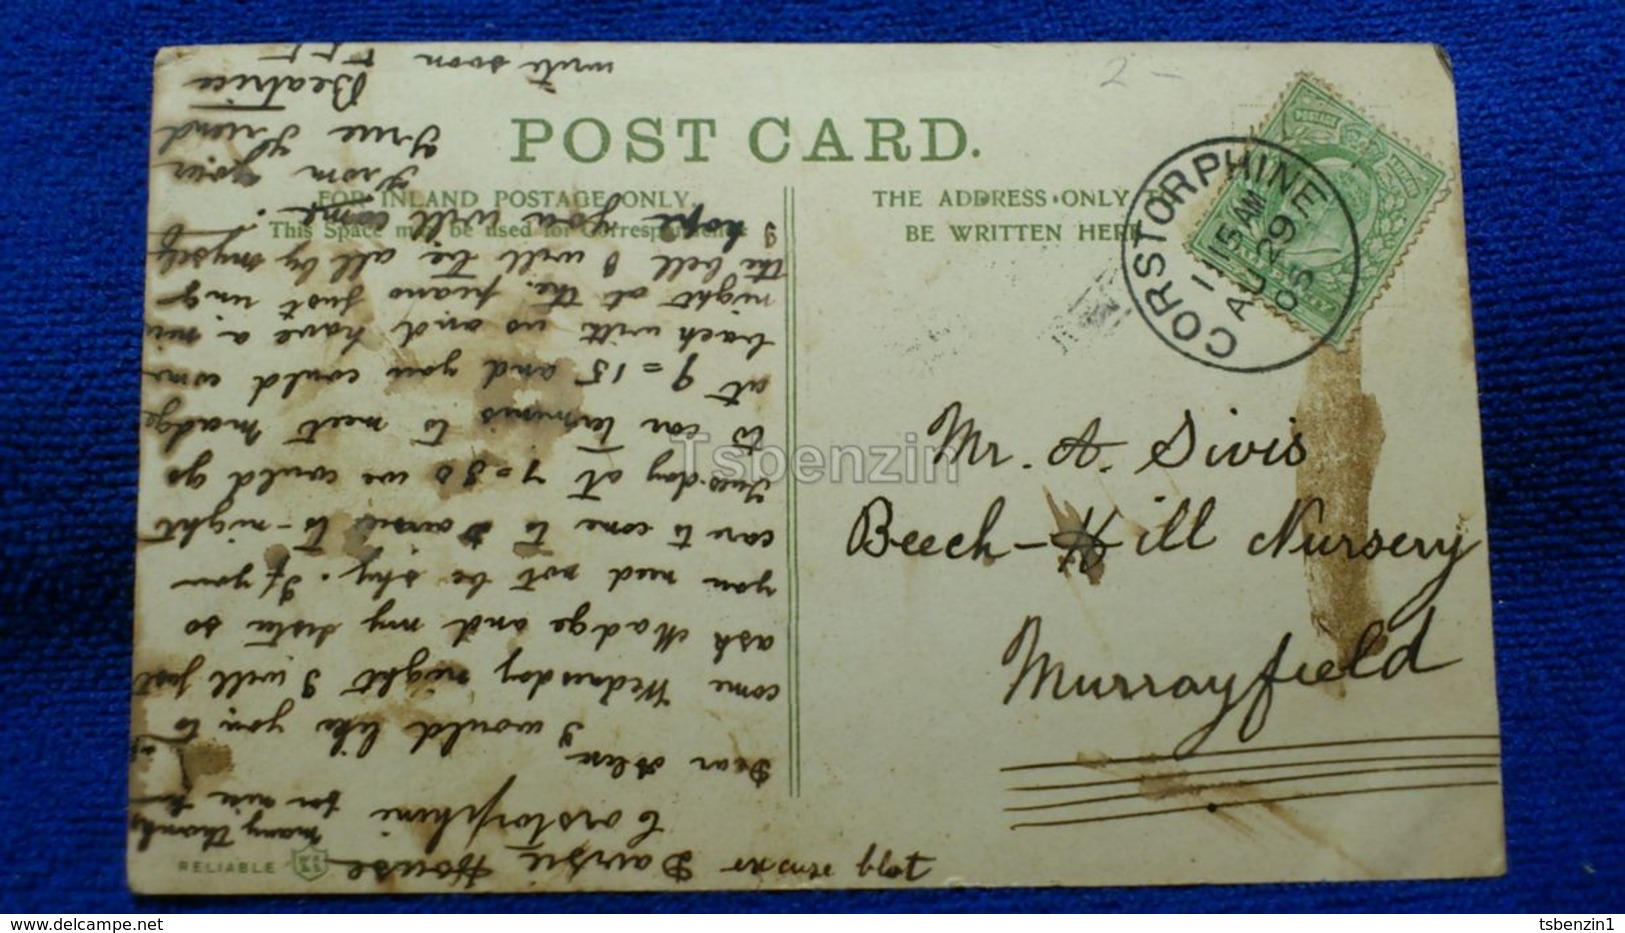 POST CARD.
FOR INLAND POSTAGE ONLY.
This Space may be used for Correspondence
THE ADDRESS ONLY TO
BE WRITTEN HERE
CORSTORPHINE
11 15 AM
AU 29
05
E
2-
Mr. A. Sivis
Beech-Hill Nursery
Murrayfield
RELIABLE
Dairsie House
Corstorphine
many thanks
for nice
Dear Alex
I would like you to
come Wednesday night I will just
ask Madge and my sister so
you need not be shy. If you
care to come to Dairsie to-night
Tues-day at 7=30 we could go
to car terminis to meet Madge
at 9=15 and you could come
back with us and have a
night at the piano just ring
the bell I will be all by myself
I hope you will come.
From your
True Friend
Beatrice
write soon
Tsbenzin
tsbenzin1